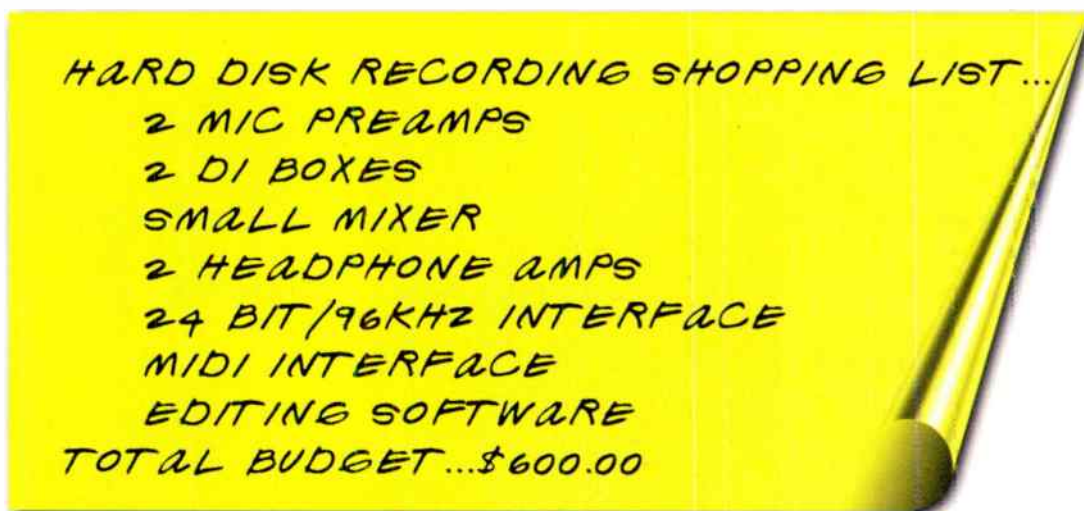 HARD DISK RECORDING SHOPPING LIST...
2 MIC PREAMPS
2 DI BOXES
SMALL MIXER
2 HEADPHONE AMPS
24 BIT/96KHZ INTERFACE
MIDI INTERFACE
EDITING SOFTWARE
TOTAL BUDGET...$600.00